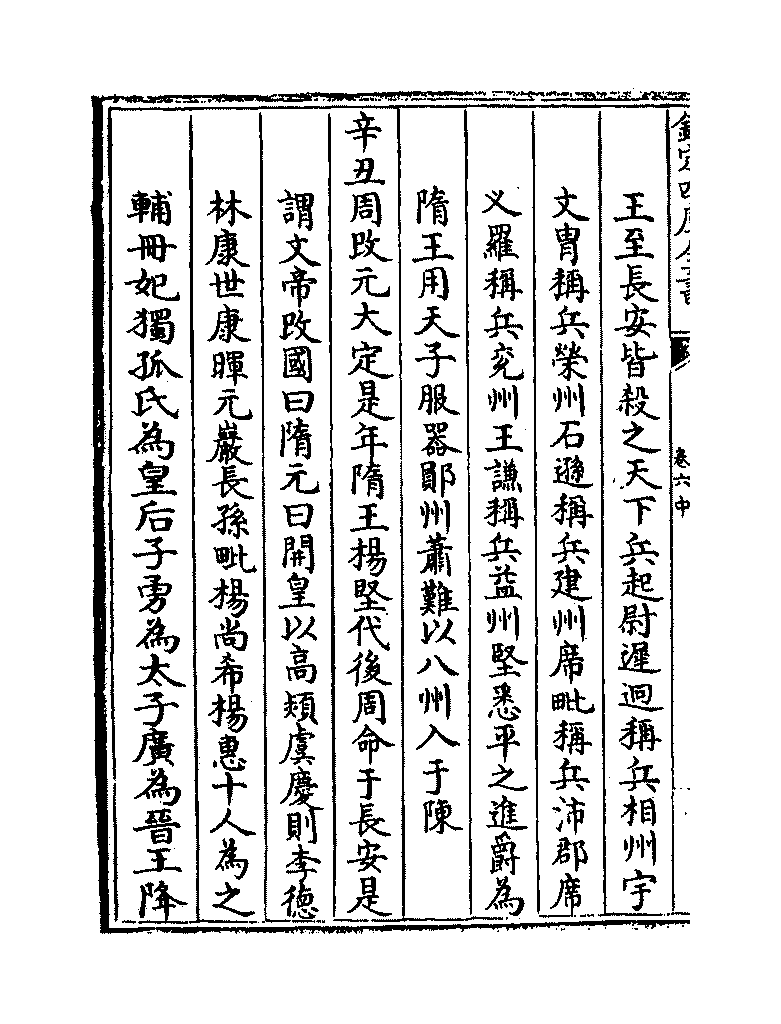 欽定四庫全書
卷六中
王至長安皆殺之天下兵起尉遲迥稱兵相州宇
文胄稱兵榮州石遜稱兵建州席毗稱兵沛郡席
义羅稱兵兖州王謙稱兵益州堅悉平之進爵為
隋王用天子服器鄖州蕭難以八州入于陳
辛丑周改元大定是年隋王楊堅代後周命于長安是
謂文帝改國曰隋元曰開皇以高熲虞慶則李德
林康世康暉元巖長孫毗楊尚希楊惠十人為之
輔冊妃獨孤氏為皇后子勇為太子廣為晉王降